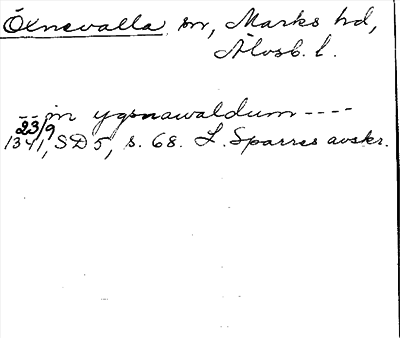 Öxnevalla sn, Marks hd,
Älvsb. l.
-- in ygsnawaldum ----
23/9
1341, SD 5, s. 68. L. Sparres avskr.